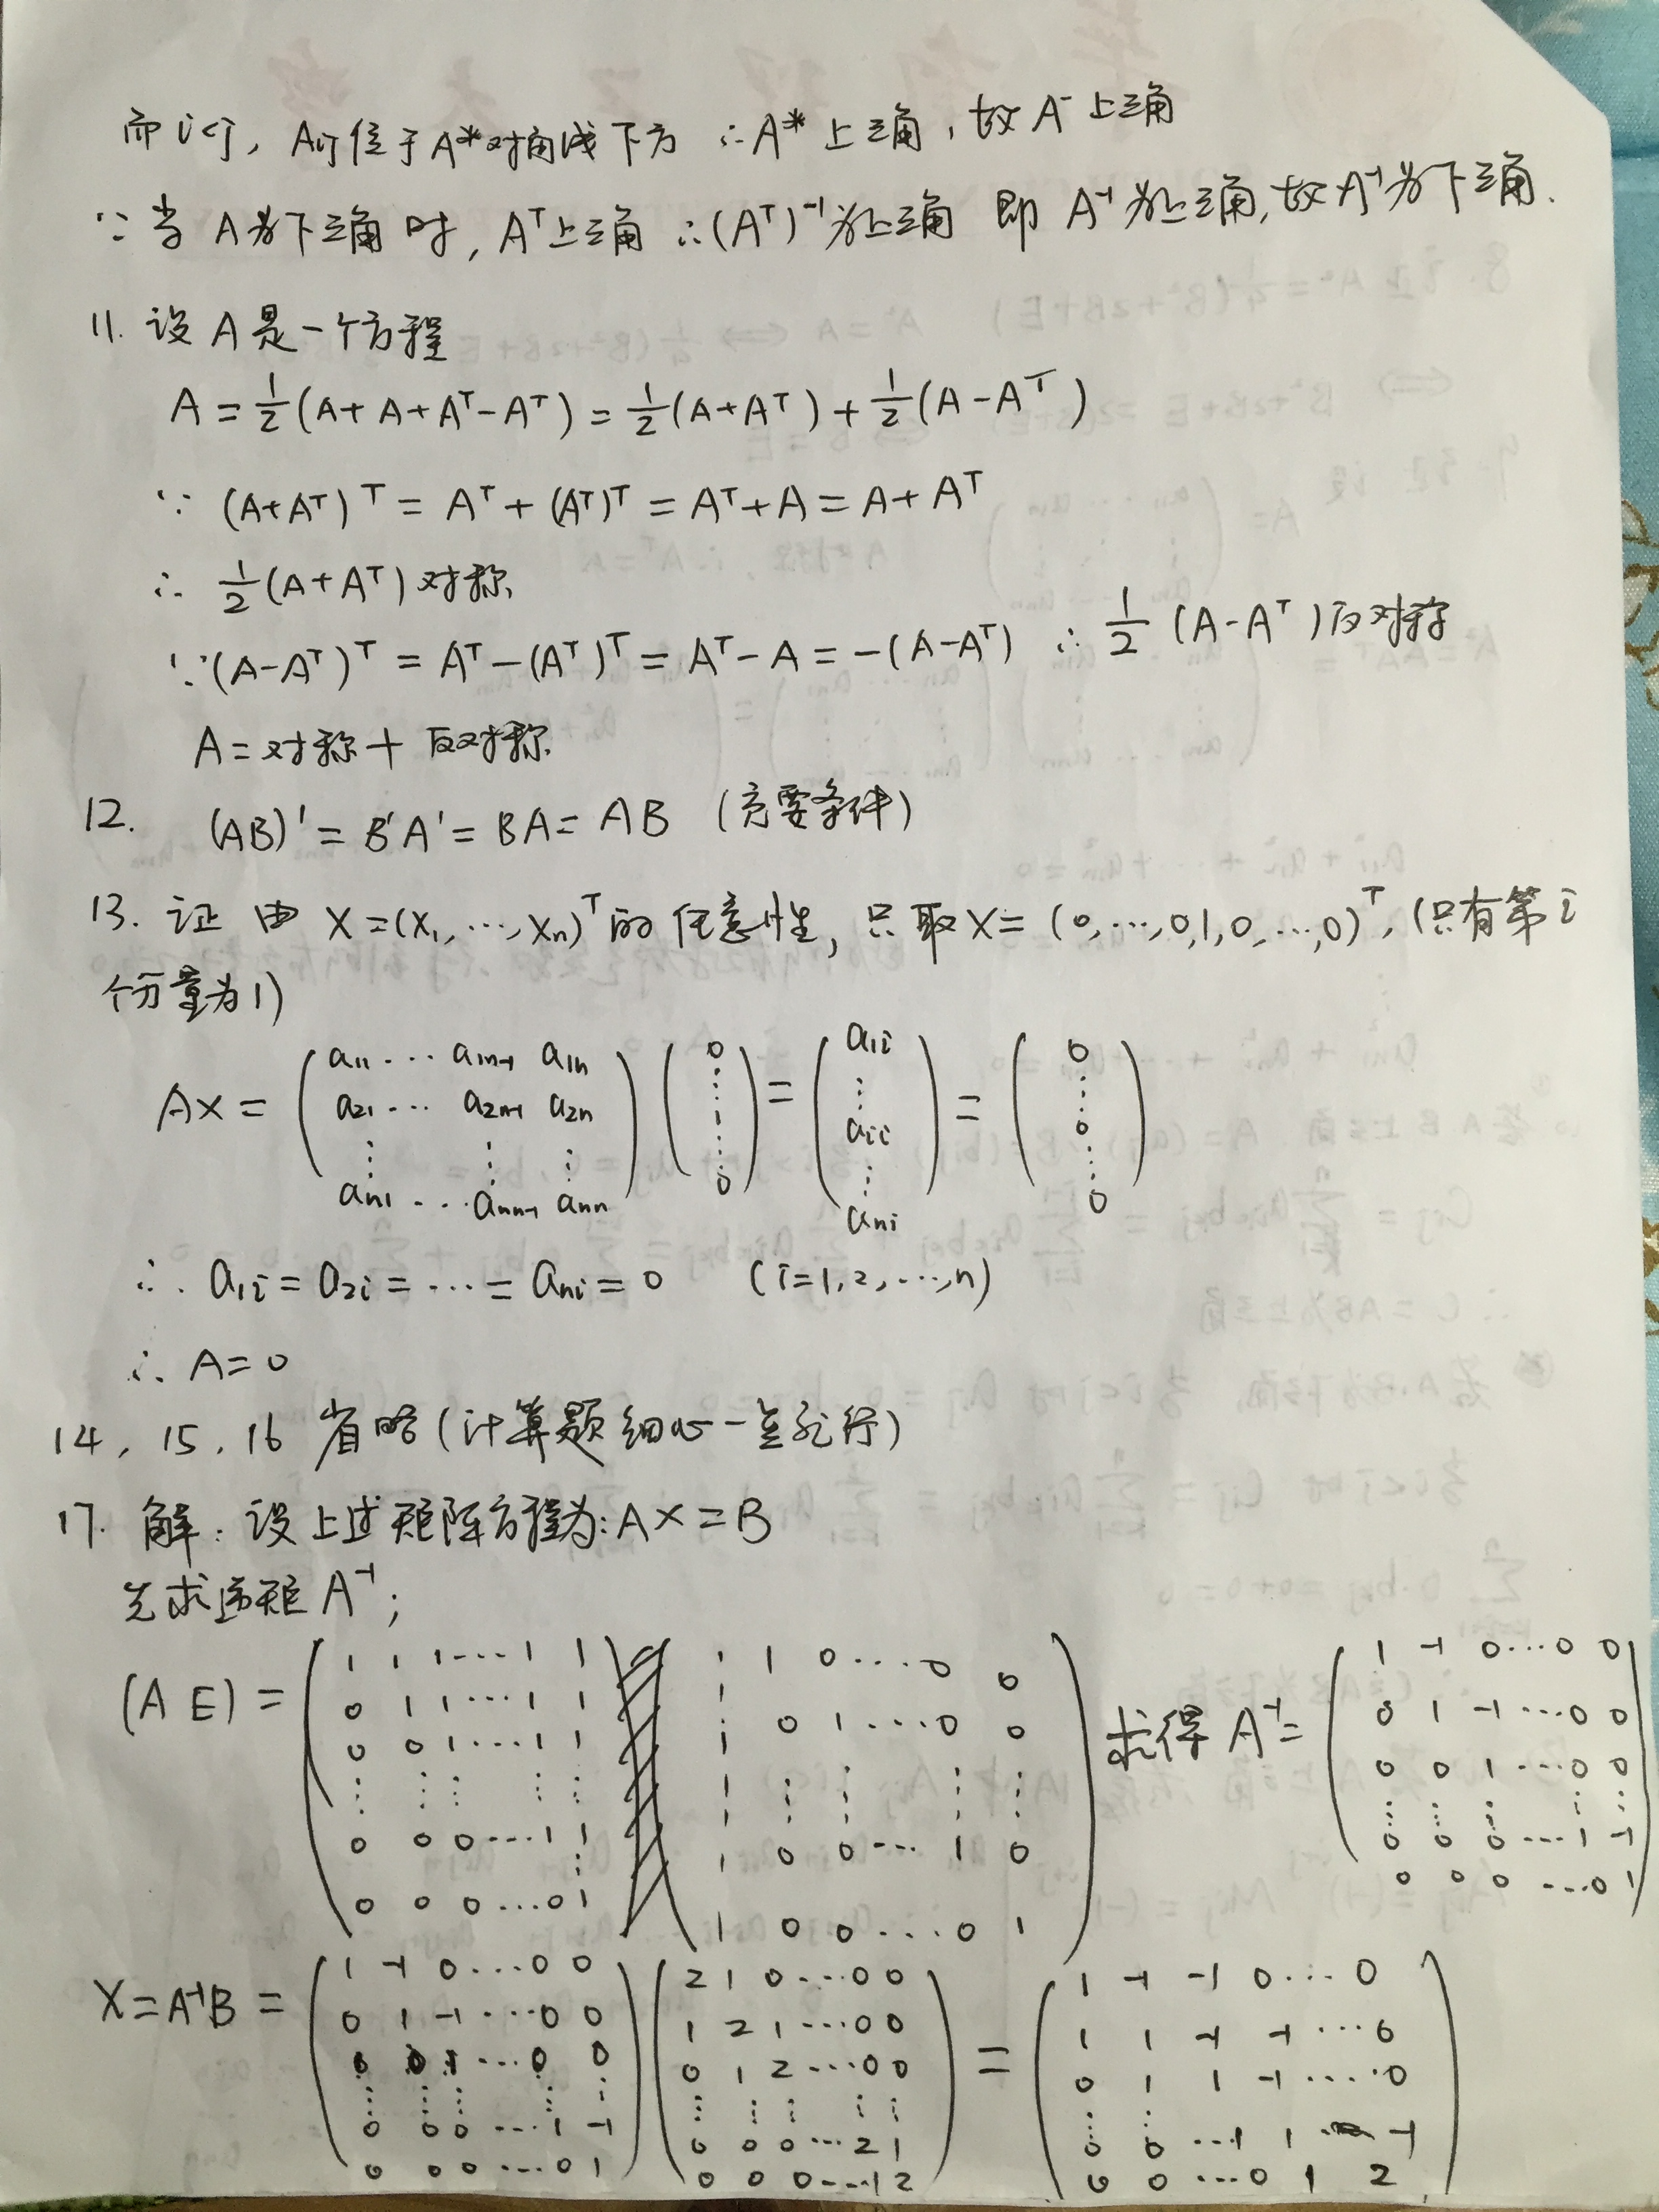 而i<j, Aij位于A*对角线下方 ∴A*上三角, 故A⁻上三角
∵当A为下三角时, Aᵀ上三角 ∴(Aᵀ)⁻¹为上三角 即 A⁻¹为上三角, 故A⁻¹为下三角.
11. 设A是一个方程
A = 1/2(A+A+Aᵀ-Aᵀ) = 1/2(A+Aᵀ) + 1/2(A-Aᵀ)
∵ (A+Aᵀ)ᵀ = Aᵀ+(Aᵀ)ᵀ = Aᵀ+A = A+Aᵀ
∴ 1/2(A+Aᵀ)对称,
∵(A-Aᵀ)ᵀ = Aᵀ-(Aᵀ)ᵀ = Aᵀ-A = -(A-Aᵀ) ∴ 1/2 (A-Aᵀ)反对称
A=对称+反对称.
12. (AB)' = B'A' = BA = AB (充要条件)
13. 证 由 X=(X₁,…,Xn)ᵀ的任意性, 只取X= (0,…,0,1,0,…,0)ᵀ, (只有第i
个分量为1)
AX = ( a11 … a1n-1 a1n ) ( 0 ) = ( a1i ) = ( 0 )
a21 … a2n-1 a2n ⋮ 1 ⋮ aii ⋮ 0
⋮ ⋮ ⋮ ⋮ ⋮ ⋮
an1 … ann-1 ann 0 ani 0
∴ a1i = a2i = … = ani = 0 (i=1,2,…,n)
∴ A=0
14, 15, 16 省略(计算题细心一点就行)
17. 解: 设上述矩阵方程为: AX=B
先求逆矩 A⁻¹;
(A E) = ( 1 1 1 … 1 1 ¦ 1 0 … 0 0 ) 求得 A⁻¹ = ( 1 -1 0 … 0 0 )
0 1 1 … 1 1 ¦ 0 1 … 0 0 0 1 -1 … 0 0
0 0 1 … 1 1 ¦ ⋮ ⋮ ⋮ ⋮ 0 0 1 … 0 0
⋮ ⋮ ⋮ ⋮ ⋮ ⋮ ⋮ ⋮ ⋮
0 0 0 … 1 1 ¦ 0 0 … 1 0 0 0 0 … 1 -1
0 0 0 … 0 1 ¦ 0 0 … 0 1 0 0 0 … 0 1
X=A⁻¹B = ( 1 -1 0 … 0 0 ) ( 2 1 0 … 0 0 ) = ( 1 -1 -1 0 … 0 )
0 1 -1 … 0 0 1 2 1 … 0 0 1 1 -1 -1 … 0
0 0 1 … 0 0 0 1 2 … 0 0 0 1 1 -1 … 0
⋮ ⋮ ⋮ ⋮ ⋮ ⋮ ⋮ ⋮ ⋮ ⋮ ⋮ ⋮
0 0 0 … 1 -1 0 0 0 … 2 1 0 0 … 1 1 -1
0 0 0 … 0 1 0 0 0 … 1 2 0 0 … 0 1 2